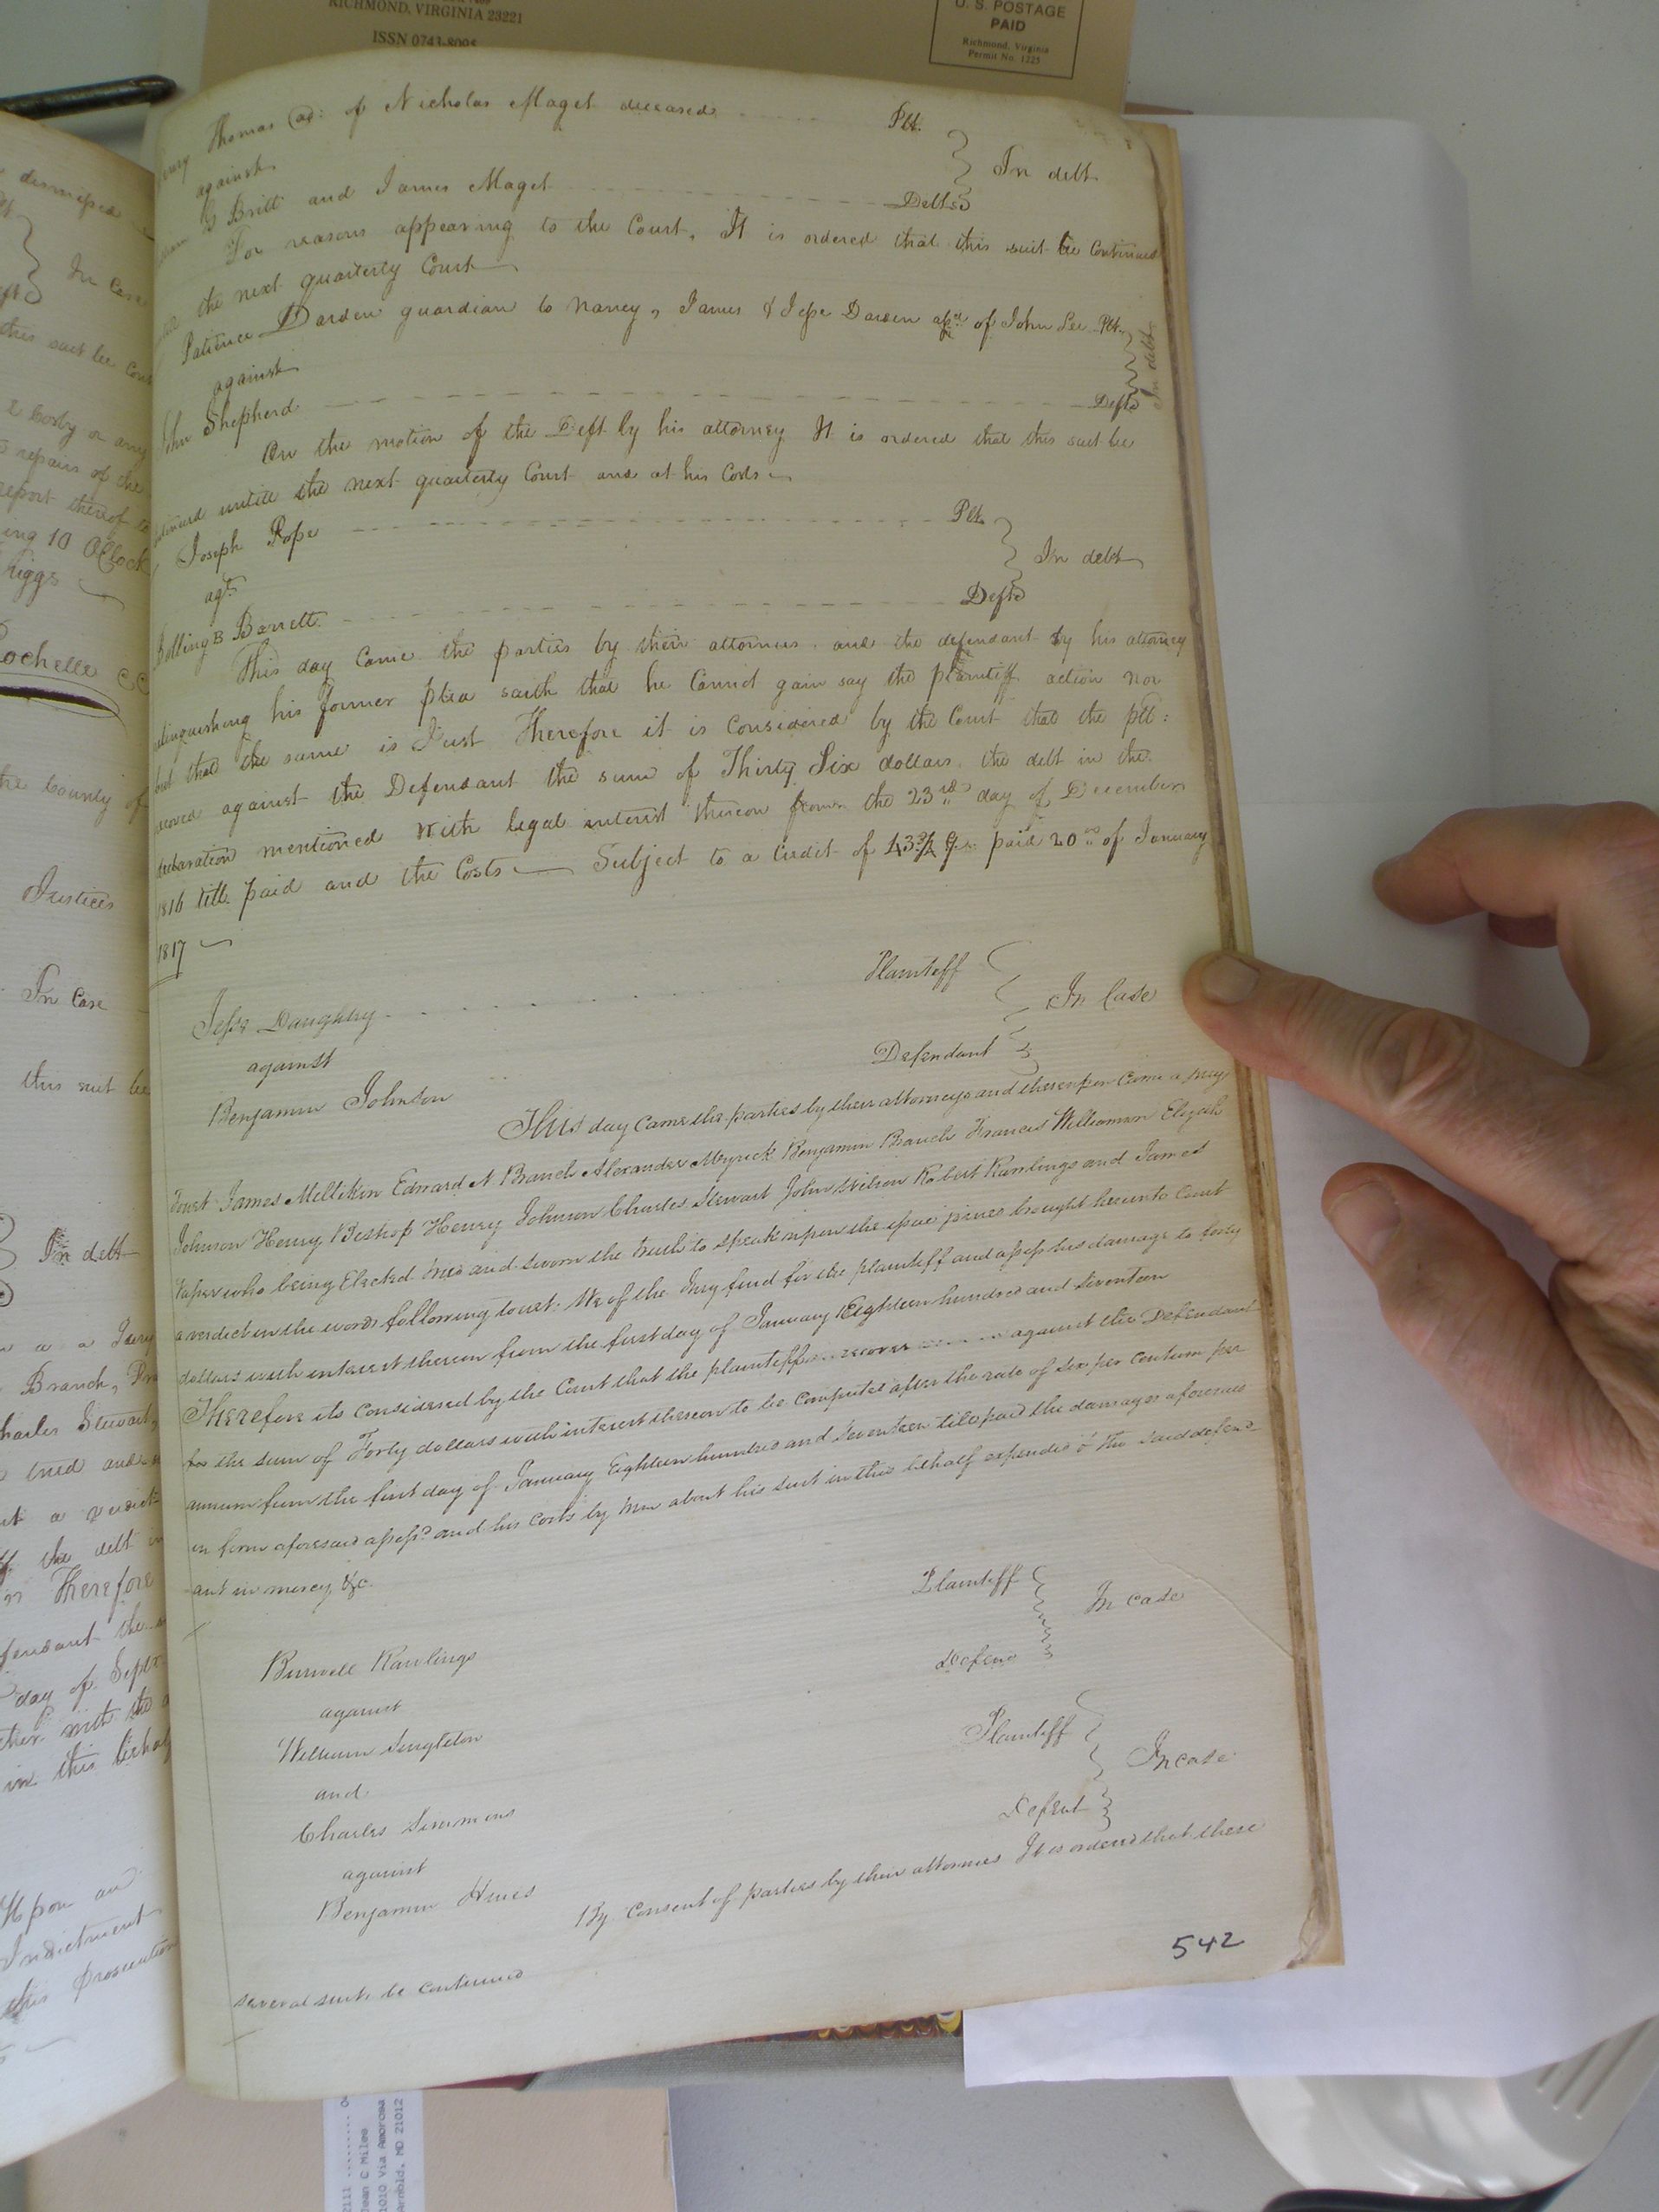 RICHMOND, VIRGINIA 23221
ISSN 0743-8095
U. S. POSTAGE
PAID
Richmond, Virginia
Permit No. 1225
Thomas ad: of Nicholas Maget deceased Plt.
against
G Britt and James Maget Defts
In debt
For reasons appearing to the Court, It is ordered that this suit be Continued
the next quarterly Court
Patience Darden guardian to Nancy, James & Jesse Darden of John Lee Plt.
against
Shepherd Deft
In debt
On the motion of the Deft by his attorney It is ordered that this suit be
untill the next quarterly Court and at his Costs
Joseph Pope Plt.
agt
Bolling B Barrett Deft
In debt
This day Came the parties by their attornies, and the defendant by his attorney
his former plea saith that he Cannot gain say the plaintiff action nor
but that the same is Just Therefore it is Considered by the Court that the plt:
against the Defendant the sum of Thirty Six dollars, the debt in the
declaration mentioned With legal interest thereon from the 23rd day of December
1816 till paid and the Costs Subject to a Credit of paid 20th of January
1817
Jesse Daughtry Plaintiff
against
Benjamin Johnson Defendant
In Case
This day Came the parties by their attorneys and thereupon Came a Jury
towit James Millikin Edward N Branch Alexander Myrick Benjamin Branch Francis Williamson Elijah
Johnson Henry Bishop Henry Johnson Charles Stewart John Wilson Robert Rawlings and James
who being Elected tried and sworn the truth to speak upon the issue joined brought here into Court
a verdict in the words following towit. We of the Jury find for the plaintiff and assess his damage to forty
dollars with interest thereon from the first day of January Eighteen hundred and Seventeen
Therefore its Considered by the Court that the plaintiff recover against the Defendant
for the sum of Forty dollars with interest thereon to be Computed after the rate of Six per Centum per
annum from the first day of January Eighteen hundred and Seventeen till paid the damages aforesaid
in form aforesaid assessd and his costs by him about his suit in this behalf expended & the said defend-
ant in mercy &c.
Burwell Rawlings Plaintiff
against
William Singleton Defend
In case
and
Charles Simmons Plaintiff
against
Benjamin Hines Defent
In case
By Consent of parties by their attornies It is ordered that these
several suits be continued
542
In Case
this suit be
repairs of the
report thereof to
ing 10 OClock
Rochelle
the County of
Justices
In Case
this suit be
In debt
a Jury
Branch,
Charles Stewart,
tried and
a verdict
the debt in
Therefore
the
day of Septr
with the
in this behalf
Upon an
Indictment
this prosecution
Jean C Miles
1010 Via Amorosa
Arnold, MD 21012